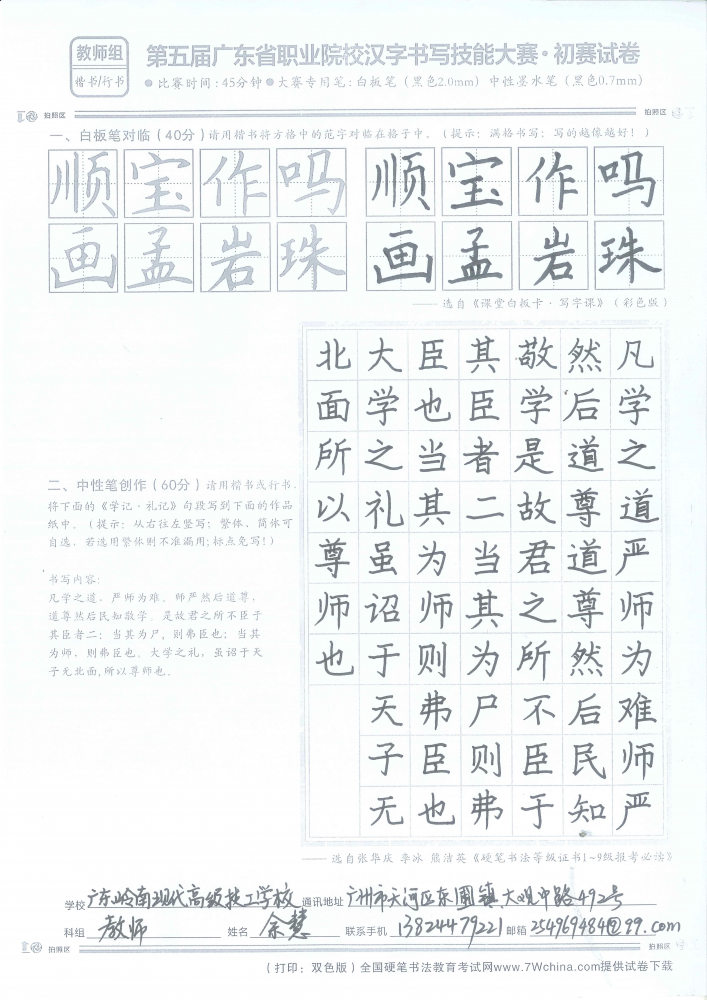 教师组
楷书/行书
第五届广东省职业院校汉字书写技能大赛·初赛试卷
●比赛时间:45分钟●大赛专用笔:白板笔(黑色2.0mm)中性墨水笔(黑色0.7mm)
拍照区
拍照区
一、白板笔对临(40分)请用楷书将方格中的范字对临在格子中。(提示:满格书写;写的越像越好!)
顺宝作吗 顺宝作吗
画孟岩珠 画孟岩珠
——选自《课堂白板卡·写字课》(彩色版)
二、中性笔创作(60分)请用楷书或行书,
得下面的《学记·礼记》句段写到下面的作品
纸中。(提示:从右往左竖写;繁体、简体可
自选,若选用繁体则不准漏用;标点免写!)
书写内容:
凡学之道,严师为难。师严然后道尊,
道尊然后民知敬学。是故君之所不臣于
其臣者二:当其为尸,则弗臣也;当其
为师,则弗臣也。大学之礼,虽诏于天
子无北面,所以尊师也。
凡学之道严师为难师严
然后道尊道尊然后民知
敬学是故君之所不臣于
其臣者二当其为尸则弗
臣也当其为师则弗臣也
大学之礼虽诏于天子无
北面所以尊师也
——选自张华庆 李冰 熊洁英《硬笔书法等级证书1~9级报考必读》
学校 广东岭南现代高级技工学校 通讯地址 广州市天河区东圃镇大观中路492号
科组 教师 姓名 余慧 联系手机 13824479221 邮箱 254969484@qq.com
拍照区
拍照区
(打印:双色版)全国硬笔书法教育考试网www.7Wchina.com提供试卷下载